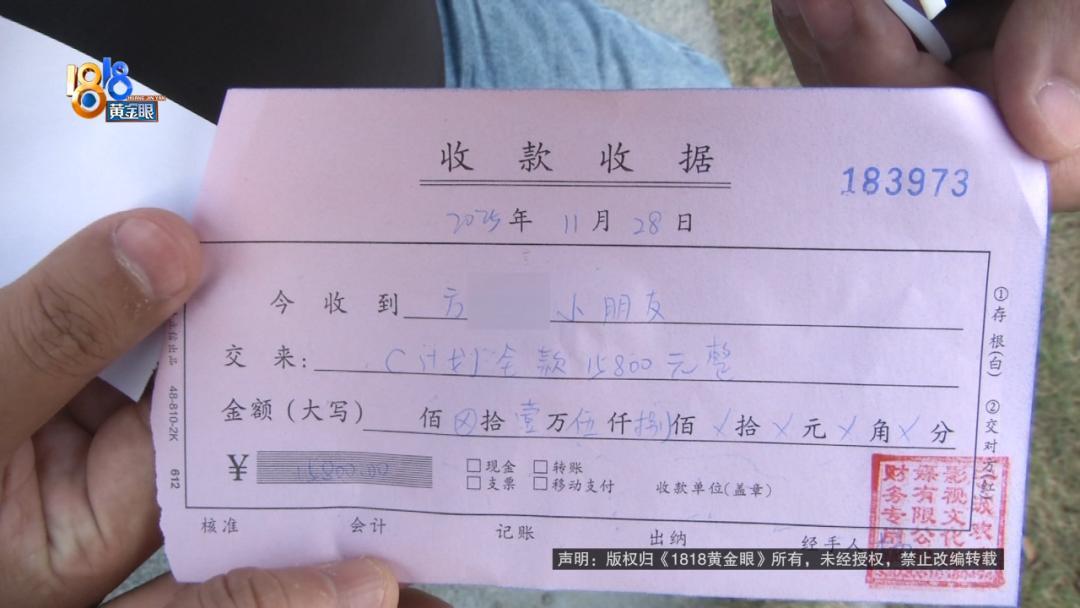 1818
黄金眼
收款收据
183973
2025年11月28日
今收到 方 小朋友
交来: C计划全款15800元整
金额(大写) 佰⊗拾壹万伍仟捌佰✓拾✓元✓角✓分
¥ 15800.00
□现金 □转账
□支票 □移动支付 收款单位(盖章)
核准 会计 记账 出纳 经手人
①存根(白) ②交对方(红)
48-810-2K 612
影视文化
有限公
财务专
声明:版权归《1818黄金眼》所有,未经授权,禁止改编转载